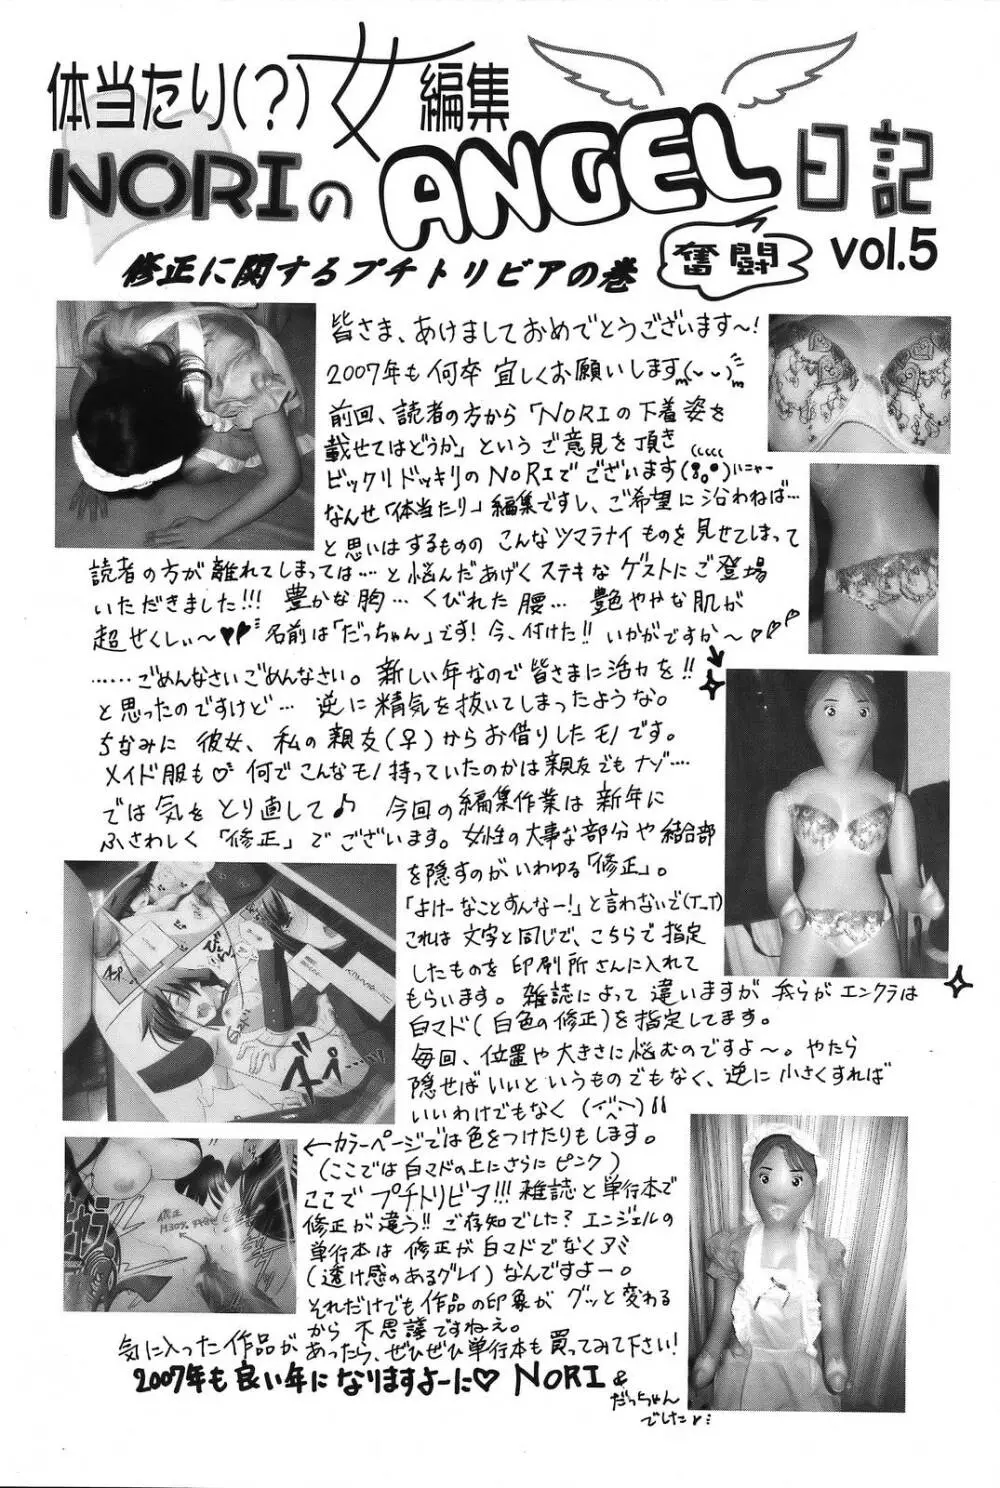 体当たり(?)女編集
NORIのANGEL日記
奮闘
vol.5
修正に関するプチトリビアの巻
皆さま、あけましておめでとうございます〜!
2007年も何卒宜しくお願いします
前回、読者の方から「NORIの下着姿を
載せてはどうか」というご意見を頂き
ビックリドッキリのNORIでございます
なんせ「体当たり」編集ですし、ご希望に沿わねば…
と思いはするものの こんなツマラナイものを見せてしまって
読者の方が離れてしまっては…と悩んだあげくステキなゲストにご登場
いただきました!!! 豊かな胸…くびれた腰… 艶ややな肌が
超せくしぃ〜♥♥ 名前は「だっちゃん」です!今、付けた!! いかがですか〜♥♥
……ごめんなさいごめんなさい。新しい年なので皆さまに活力を!!
と思ったのですけど… 逆に精気を抜いてしまったような。
ちなみに彼女、私の親友(♀)からお借りしたモノです。
メイド服も♡ 何でこんなモノ持っていたのかは親友でもナゾ…
では気をとり直して♪ 今回の編集作業は新年に
ふさわしく「修正」でございます。女性の大事な部分や結合部
を隠すのがいわゆる「修正」。
「よけーなことすんなー!」と言わないで(T_T)
これは文字と同じで、こちらで指定
したものを印刷所さんに入れて
もらいます。雑誌によって違いますが我らがエンクラは
白マド(白色の修正)を指定してます。
毎回、位置や大きさに悩むのですよ〜。やたら
隠せばいいというものでもなく、逆に小さくすれば
いいわけでもなく
←カラーページでは色をつけたりもします。
(ここでは白マドの上にさらにピンク)
ここでプチトリビア!!! 雑誌と単行本で
修正が違う!! ご存知でした? エンジェルの
単行本は修正が白マドでなくアミ
(透け感のあるグレイ)なんですよー。
それだけでも作品の印象がグッと変わる
から不思議ですねえ。
気に入った作品があったら、ぜひぜひ単行本も買ってみて下さい!
2007年も良い年になりますよーに♡ NORI &
だっちゃん
でした♪
修正
M30%